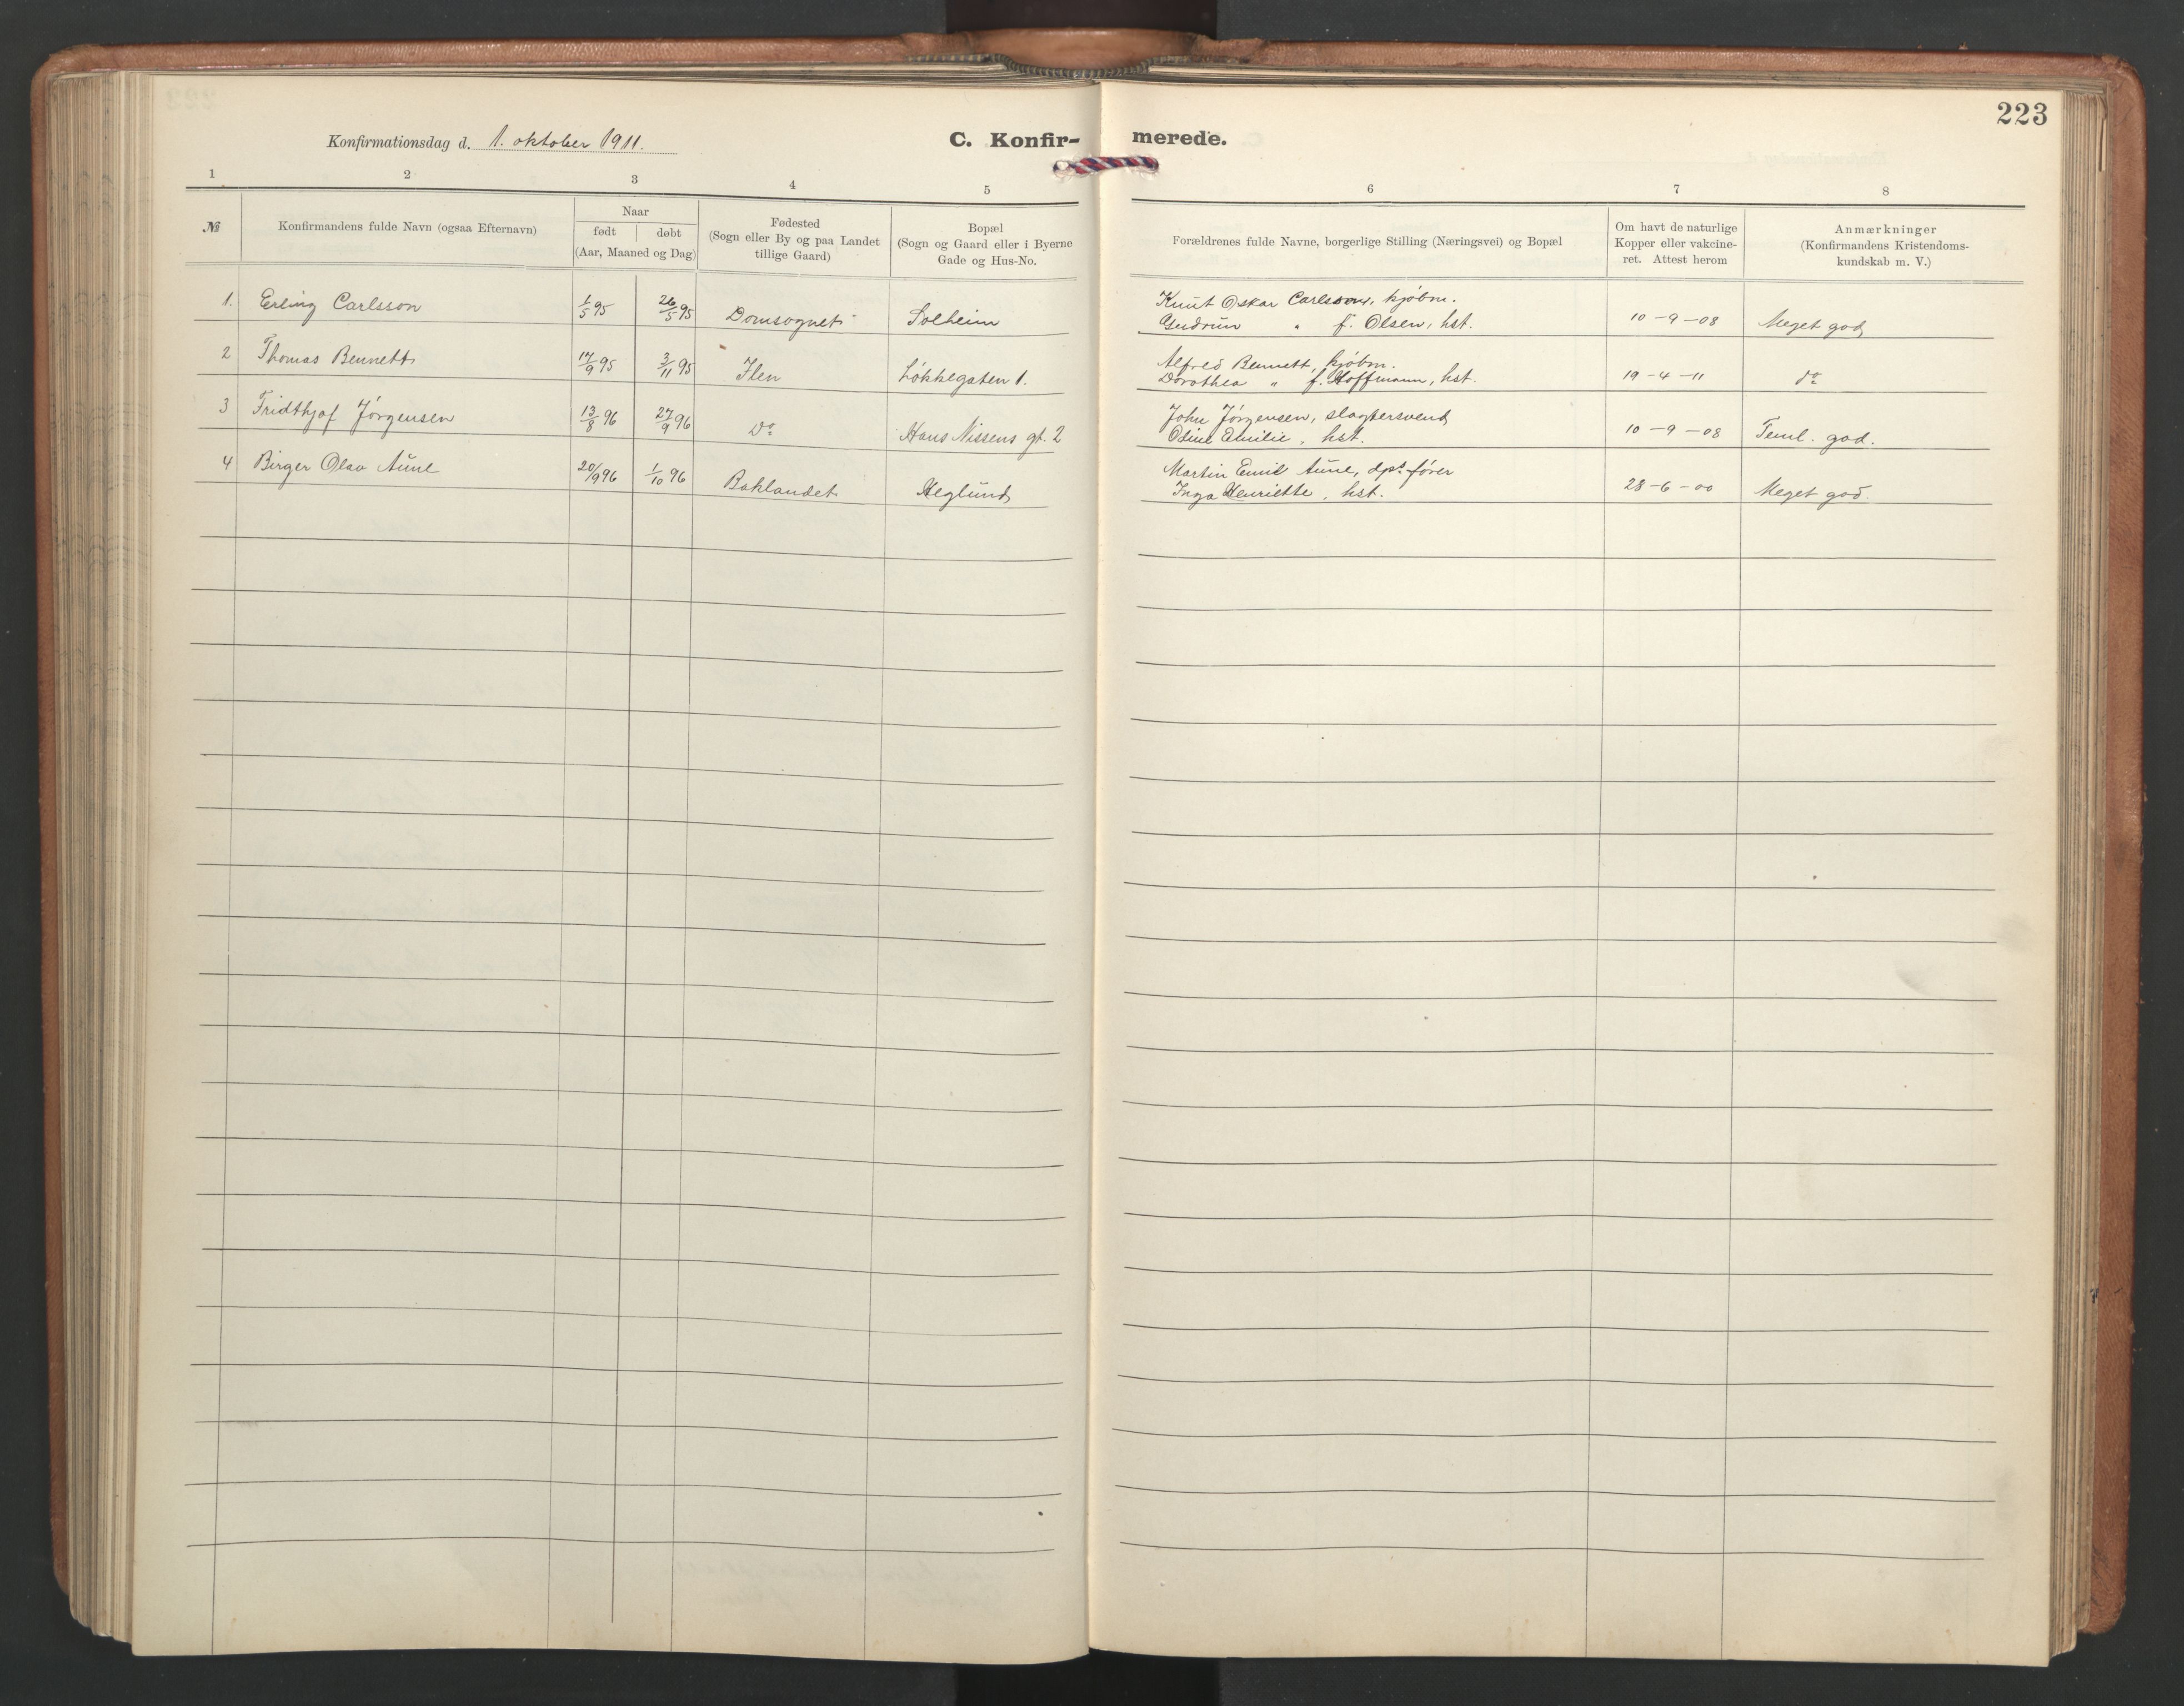 223
Konfirmationsdag d. 1. oktober 1911.
C. Konfir- merede.
1 2 3 4 5 6 7 8
№
Konfirmandens fulde Navn (ogsaa Efternavn)
Naar
født | døbt
(Aar, Maaned og Dag)
Fødested
(Sogn eller By og paa Landet
tillige Gaard)
Bopæl
(Sogn og Gaard eller i Byerne
Gade og Hus-No.
Forældrenes fulde Navne, borgerlige Stilling (Næringsvei) og Bopæl
Om havt de naturlige
Kopper eller vakcine-
ret. Attest herom
Anmærkninger
(Konfirmandens Kristendoms-
kundskab m. V.)
1. Erling Carlsson 1/5 95 26/5 95 Domsognet Solheim Knut Oskar Carlsson, kjøbm. 10-9-08 Meget god
Gudrun " f. Olsen, hst.
2 Thomas Bennett 14/9 95 3/11 95 Ilen Løkkegaten 1. Alfred Bennett, kjøbm. 19-4-11 do
Dorothea " f. Hoffmann, hst.
3 Fridthjof Jørgensen 13/8 96 27/9 96 Do Hans Nissens gt. 2 John Jørgensen, slagtersvend 10-9-08 Teml. god.
Oline Emilie, hst.
4 Birger Olav Aune 20/9 96 1/10 96 Baklandet Heglund Martin Emil Aune, dps. fører 28-6-00 Meget god.
Inga Henriette, hst.